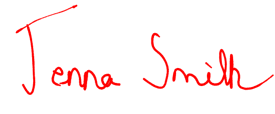 Jenna Smith